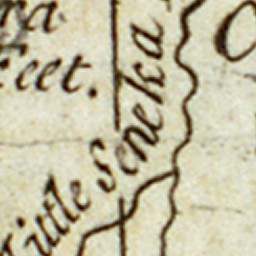 ra
Feet.
Little Seneka